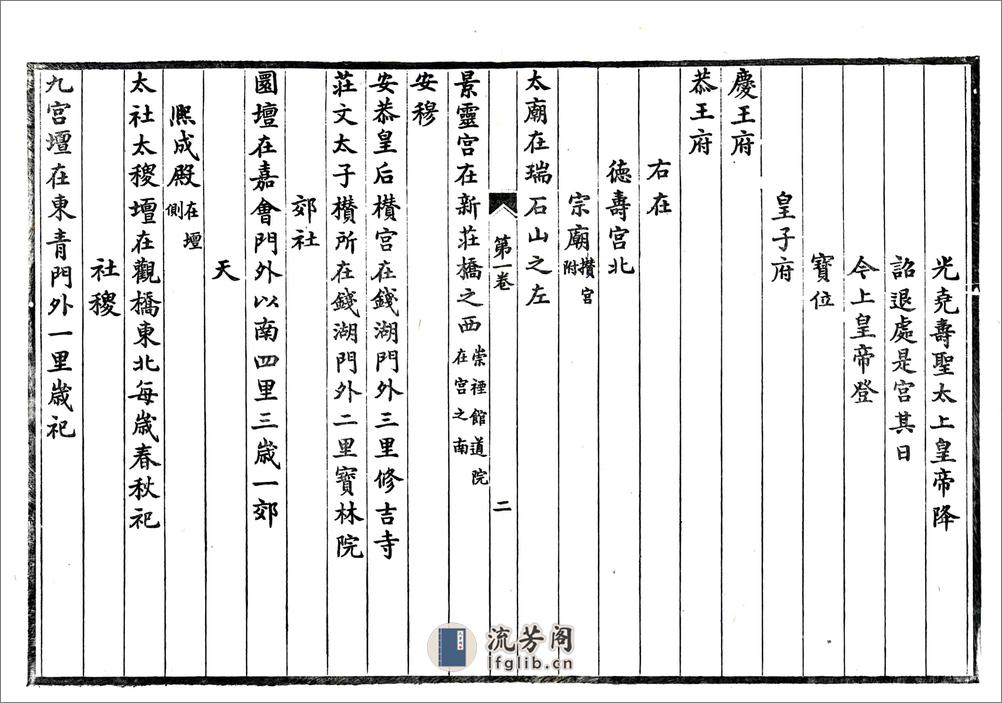 光堯壽聖太上皇帝降
詔退處是宮其日
今上皇帝登
寶位
皇子府
慶王府
恭王府
右在
德壽宮北
宗廟攅宮附
太廟在瑞石山之左
第一卷 二
景靈宮在新莊橋之西崇禋館道院在宮之南
安穆
安恭皇后攅宮在錢湖門外三里修吉寺
莊文太子攅所在錢湖門外二里寶林院
郊社
圜壇在嘉會門外以南四里三歲一郊
天
熈成殿在壇側
太社太稷壇在觀橋東北每歲春秋祀
社稷
九宮壇在東青門外一里歲祀
流芳阁
lfglib.cn